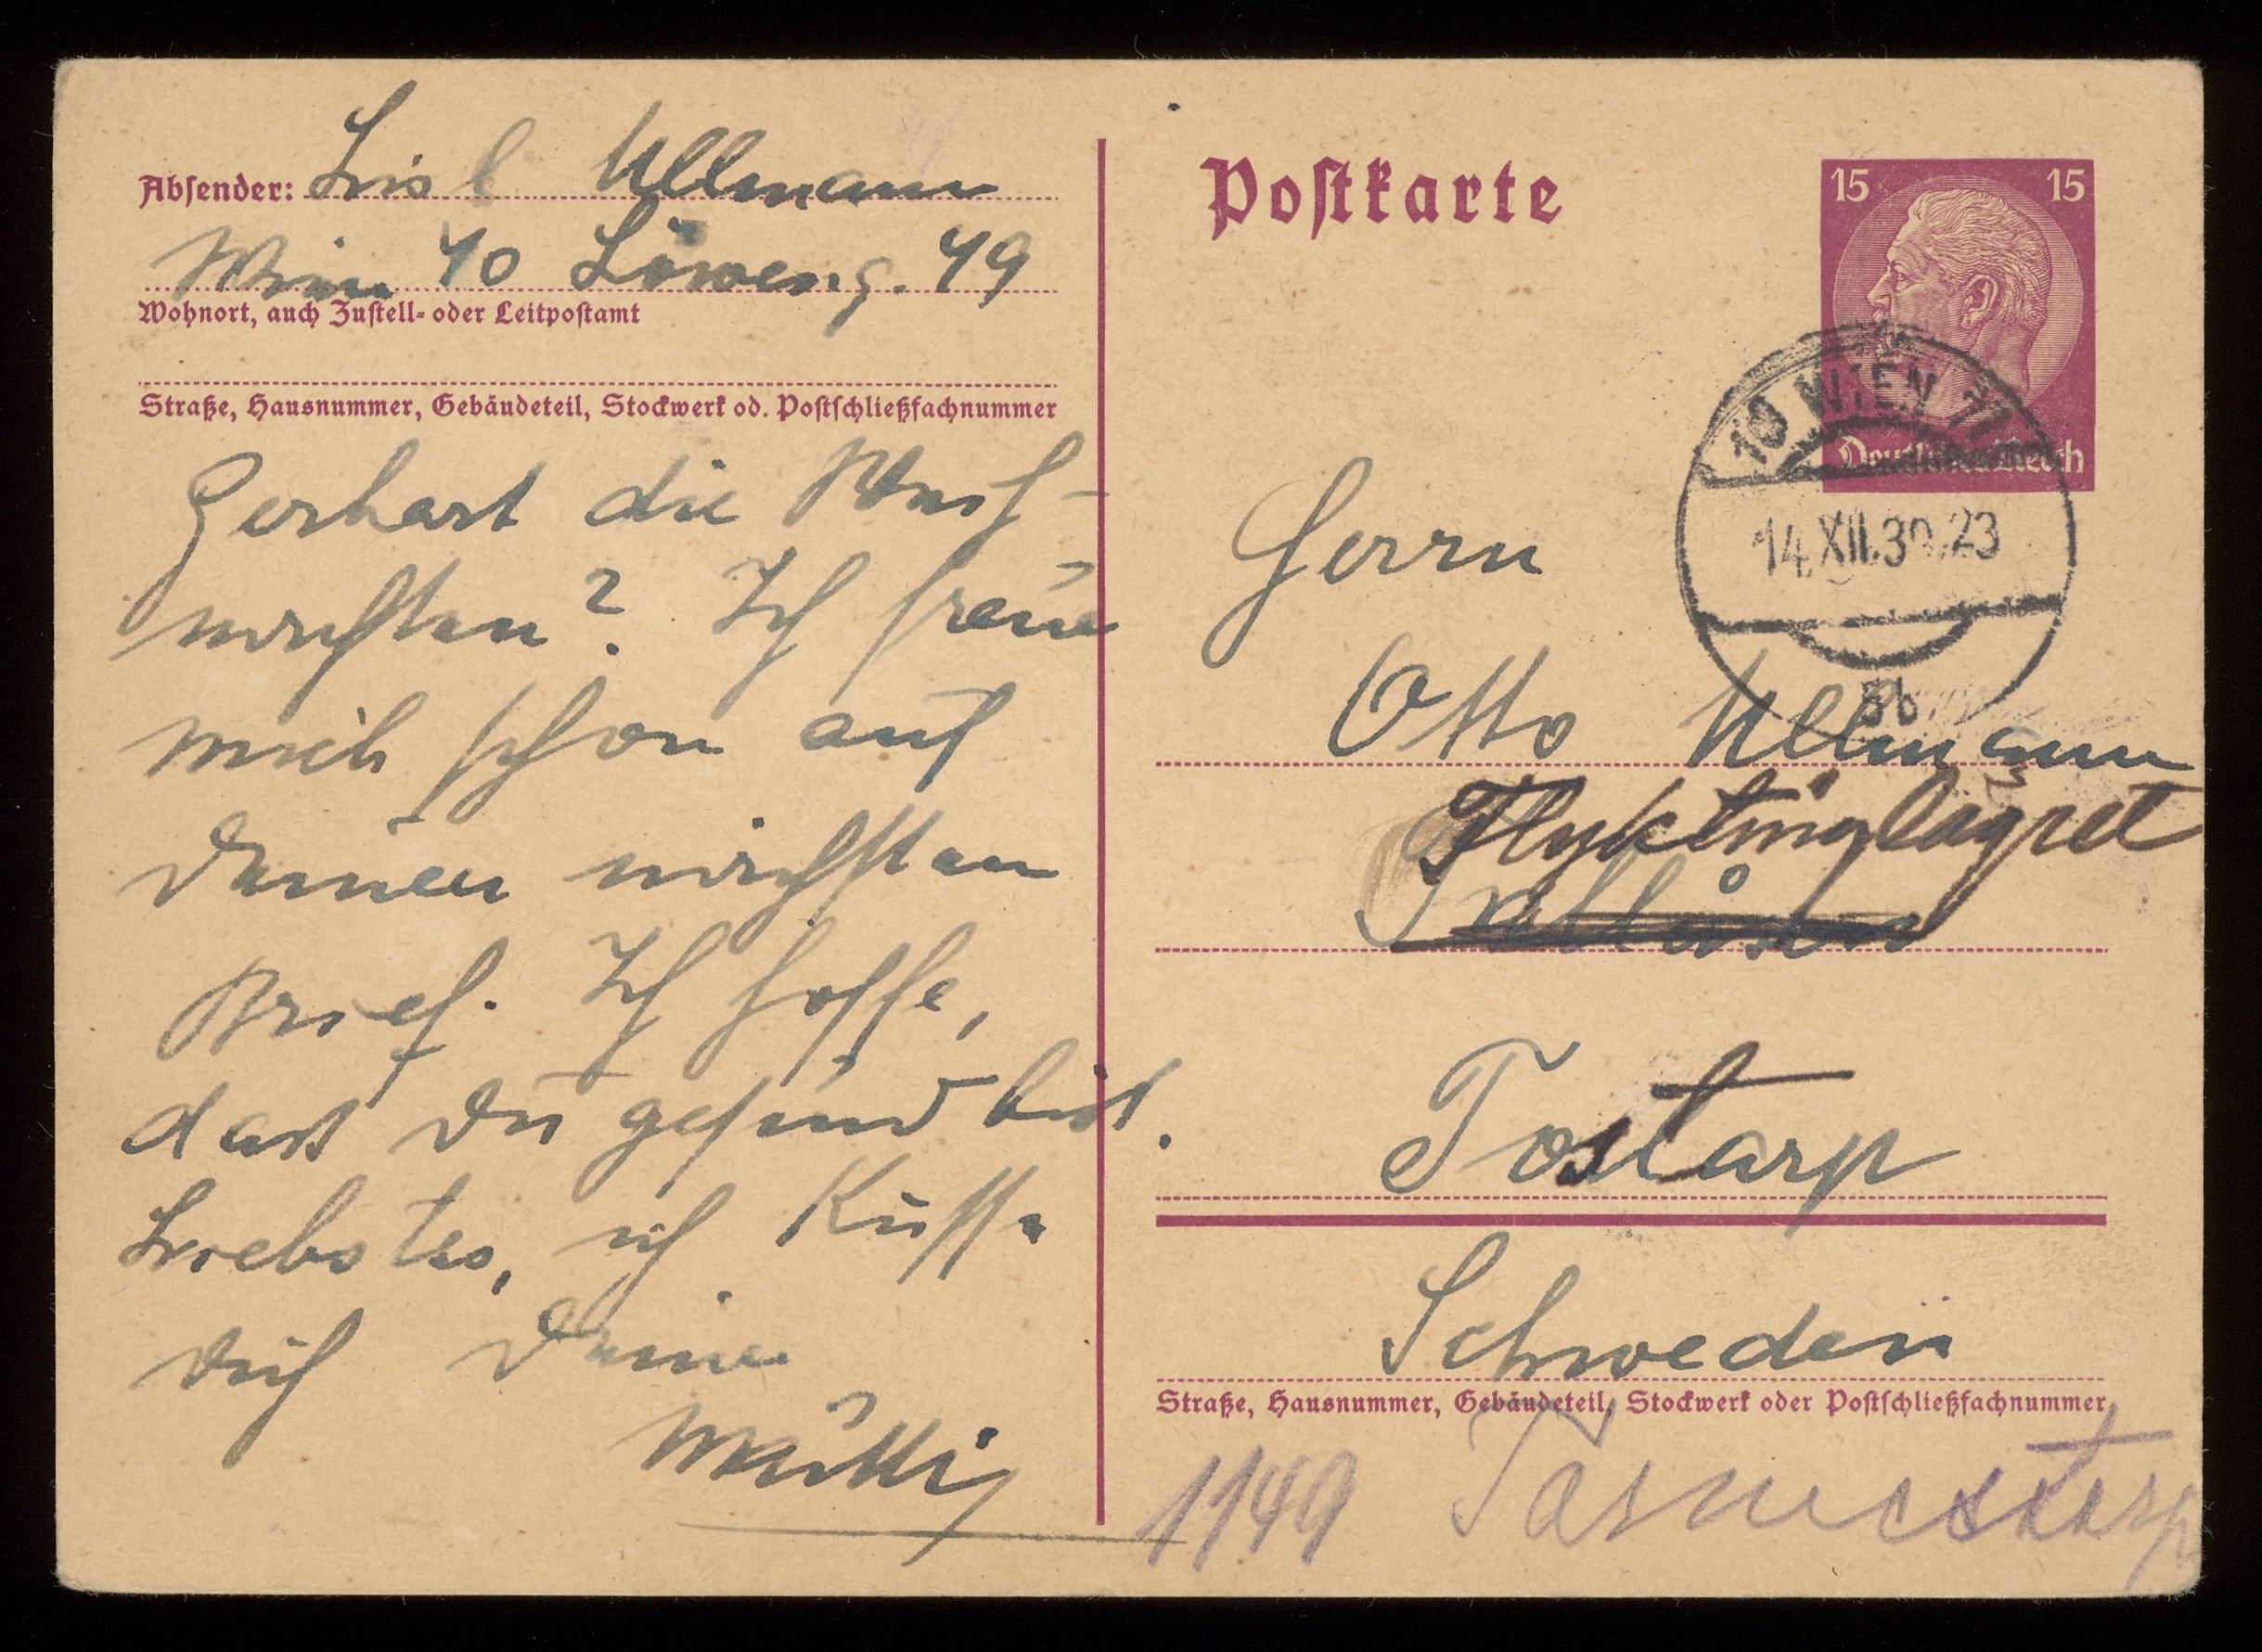 Absender: Lisl Ullmann
Wien 40 Löweng. 49
Wohnort, auch Zustell- oder Leitpostamt
Straße, Hausnummer, Gebäudeteil, Stockwerk od. Postschließfachnummer
Gerhart die Nach-
richten? Ich freue
mich schon auf
Deinen nächsten
Brief. Ich hoffe,
dass Du gesund bist.
Liebstes, ich küsse
Dich Deine
Mutti
Postkarte
15 15
Deutsches Reich
10 WIEN 71
14.XII.39.23
Herrn
Otto Ullmann
Flyktinglägret
Tostarp
Schweden
Straße, Hausnummer, Gebäudeteil, Stockwerk oder Postschließfachnummer
1149